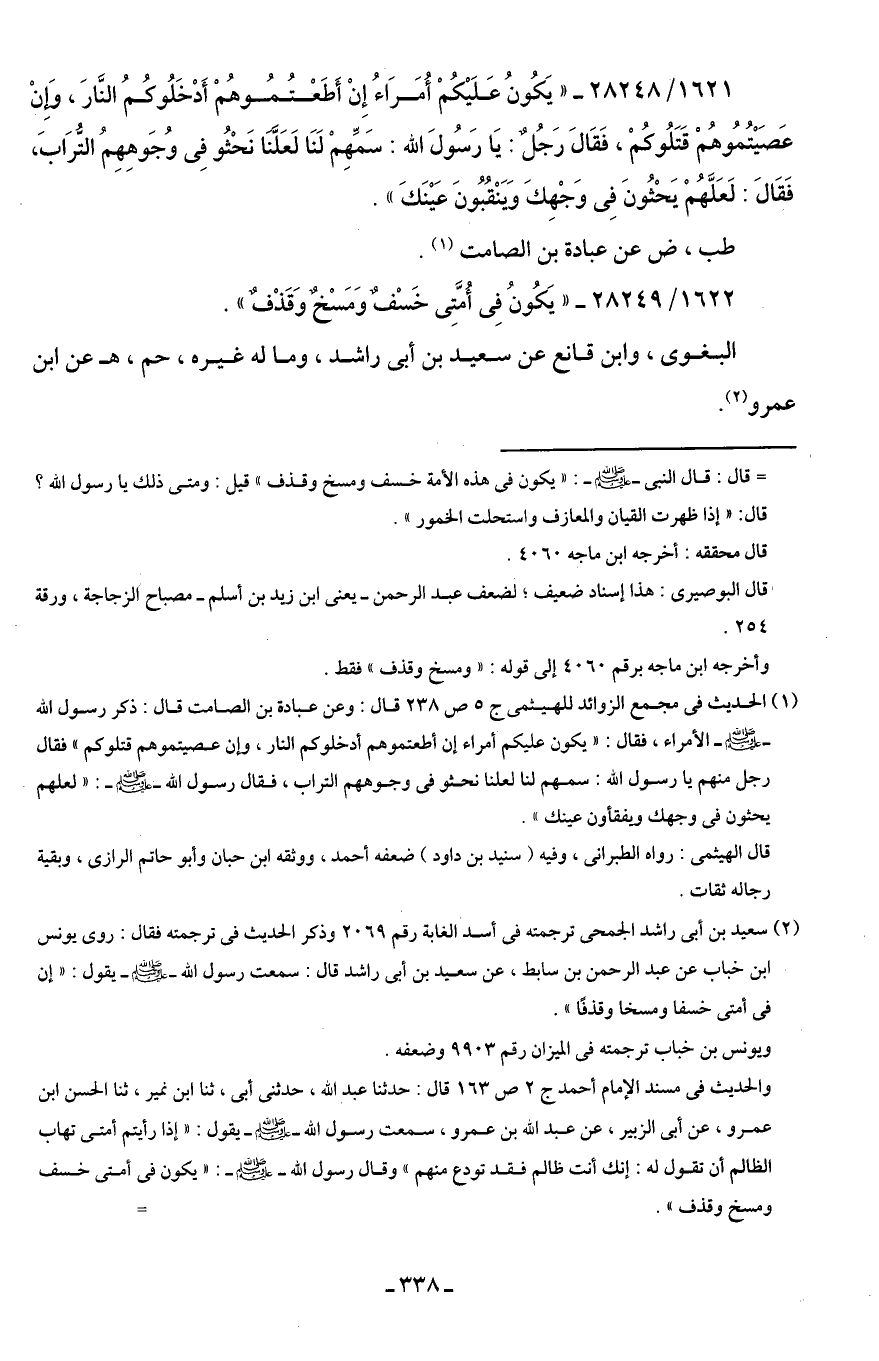 ١٦٢١/ ٢٨٢٤٨ ـ « يَكُونُ عَلَيْكُمْ أُمَرَاءُ إِنْ أَطَعْتُمُوهُمْ أَدْخَلُوكُمُ النَّارَ ، وَإِنْ
عَصَيْتُمُوهُمْ قَتَلُوكُمْ ، فَقَالَ رَجُلٌ : يَا رَسُولَ الله : سَمِّهِمْ لَنَا لَعَلَّنَا نَحْثُو فِى وُجُوهِهِمُ التُّرَابَ،
فَقَالَ : لَعَلَّهُمْ يَحْثُونَ فِى وَجْهِكَ وَيَنْقُبُونَ عَيْنَكَ » .
طب ، ض عن عبادة بن الصامت (١) .
١٦٢٢/ ٢٨٢٤٩ ـ « يَكُونُ فِى أُمَّتِى خَسْفٌ وَمَسْخٌ وَقَذْفٌ » .
البغوى ، وابن قانع عن سعيد بن أبى راشد ، وما له غيره ، حم ، هـ عن ابن
عمرو(٢).
= قال : قال النبى ـ ﷺ ـ : « يكون فى هذه الأمة خسف ومسخ وقذف » قيل : ومتى ذلك يا رسول الله ؟
قال: « إذا ظهرت القيان والمعازف واستحلت الخمور » .
قال محققه : أخرجه ابن ماجه ٤٠٦٠ .
قال البوصيرى : هذا إسناد ضعيف ؛ لضعف عبد الرحمن ـ يعنى ابن زيد بن أسلم ـ مصباح الزجاجة ، ورقة
٢٥٤ .
وأخرجه ابن ماجه برقم ٤٠٦٠ إلى قوله : « ومسخ وقذف » فقط .
(١) الحديث فى مجمع الزوائد للهيثمى ج ٥ ص ٢٣٨ قال : وعن عبادة بن الصامت قال : ذكر رسول الله
ـ ﷺ ـ الأمراء ، فقال : « يكون عليكم أمراء إن أطعتموهم أدخلوكم النار ، وإن عصيتموهم قتلوكم » فقال
رجل منهم يا رسول الله : سمهم لنا لعلنا نحثو فى وجوههم التراب ، فقال رسول الله ـ ﷺ ـ : « لعلهم
يحثون فى وجهك ويفقأون عينك » .
قال الهيثمى : رواه الطبرانى ، وفيه ( سنيد بن داود ) ضعفه أحمد ، ووثقه ابن حبان وأبو حاتم الرازى ، وبقية
رجاله ثقات .
(٢) سعيد بن أبى راشد الجمحى ترجمته فى أسد الغابة رقم ٢٠٦٩ وذكر الحديث فى ترجمته فقال : روى يونس
ابن خباب عن عبد الرحمن بن سابط ، عن سعيد بن أبى راشد قال : سمعت رسول الله ـ ﷺ ـ يقول : « إن
فى أمتى خسفا ومسخا وقذفًا » .
ويونس بن خباب ترجمته فى الميزان رقم ٩٩٠٣ وضعفه .
والحديث فى مسند الإمام أحمد ج ٢ ص ١٦٣ قال : حدثنا عبد الله ، حدثنى أبى ، ثنا ابن نمير ، ثنا الحسن ابن
عمرو ، عن أبى الزبير ، عن عبد الله بن عمرو ، سمعت رسول الله ـ ﷺ ـ يقول : « إذا رأيتم أمتى تهاب
الظالم أن تقول له : إنك أنت ظالم فقد تودع منهم » وقال رسول الله ـ ﷺ ـ : « يكون فى أمتى خسف
ومسخ وقذف » . =
ـ ٣٣٨ ـ